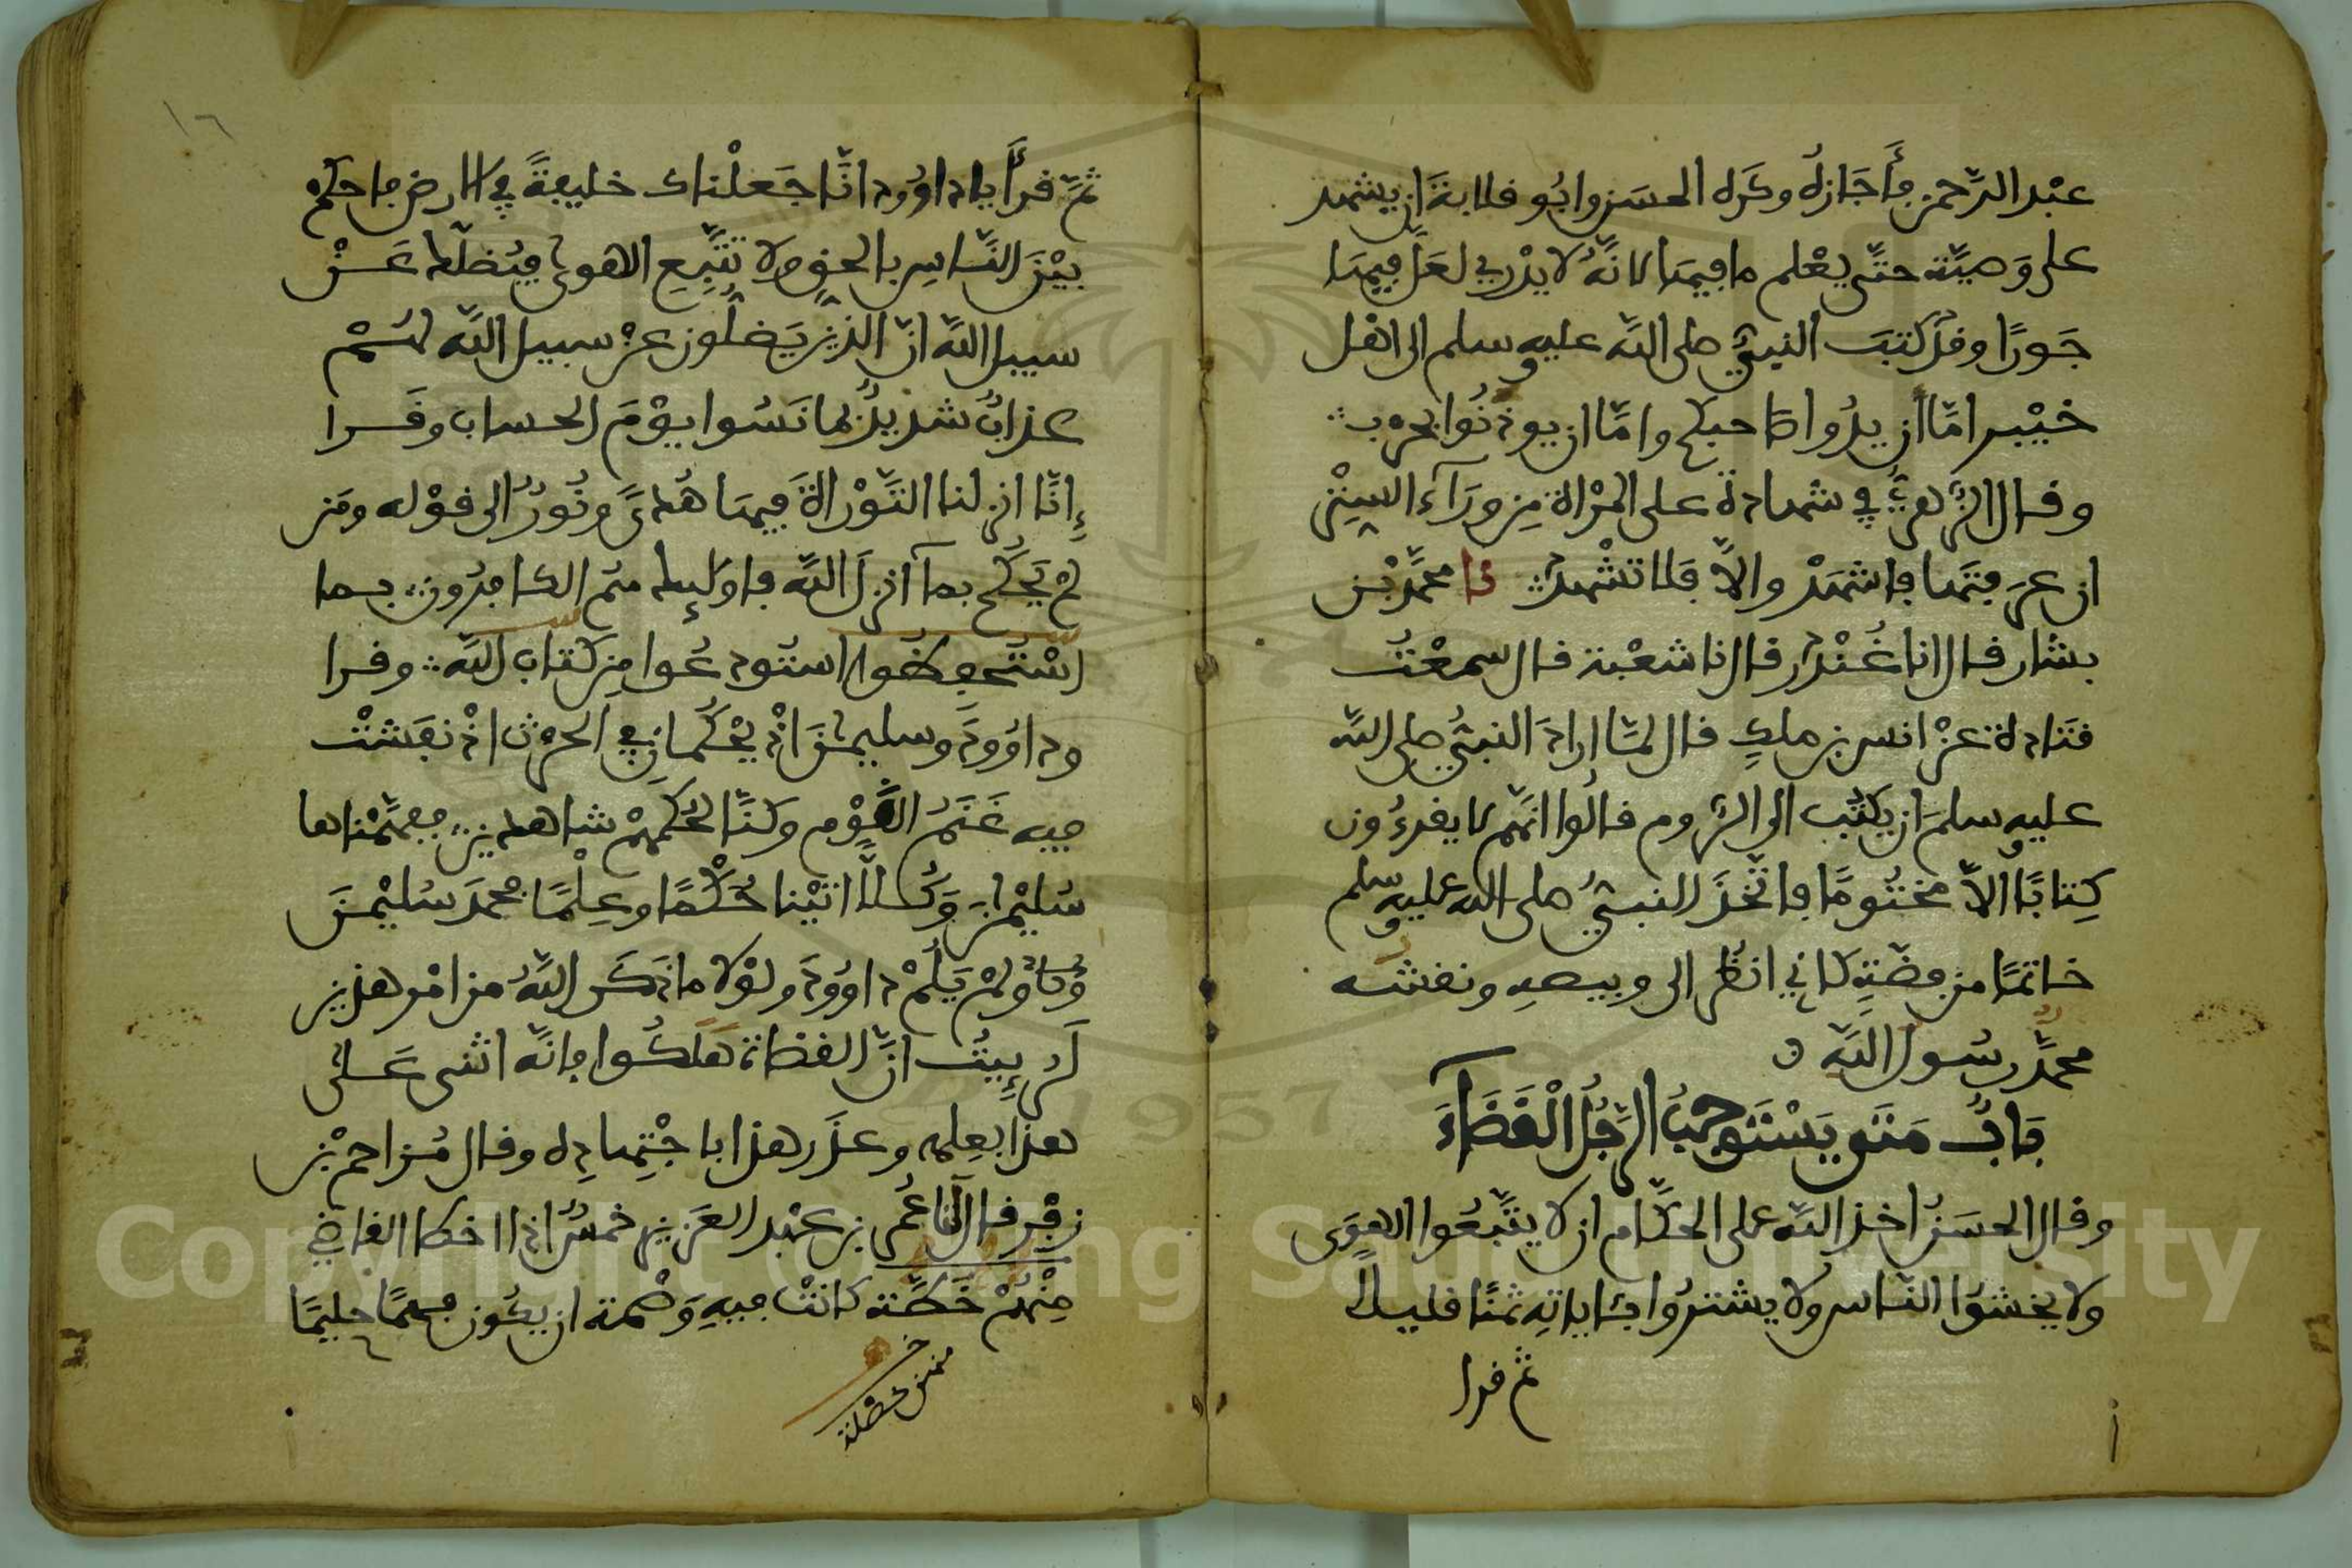 عبْد الرَّحمن فأَجَازَهُ وكَرِه الحسَن وابُو قلابةَ ان يشهد
على وَصيَّة حتَّى يعْلم ما فيهَا لانَّهُ لا يدْرِي لعَلَّ فيهَا
جَورًا وقدْ كتبَ النبيُّ صلى اللَّه عليه وسلم الى اهْل
خيْبر امَّا أن يدُوا صاحبكم وامَّا ان يوذنُوا بحرب
وقال الزُّهرِيُّ في شهادة على المرْاة مِن ورَآء السِتْر
ان عرفتَها فاشهَدْ والاَّ فَلا تشْهدْ نا محمَّد بْن
بشار قال انا غُنْدَر قال نا شعْبة قال سمعْتُ
قتَادة عنْ انس بن ملكٍ قال لمَّا ارادَ النبيُّ صلى اللَّه
عليه وسلمَ ان يكتُب الى الرُّوم قالُوا انهَّم لا يقرءُون
كِتابًا الاَّ مختُومًا فاتَّخذَ النبيُّ صلى الله عليه وسلم
خاتمًا من فضَّةٍ كاني انظُر الى وبيصهِ ونقشُه
محمَّدٌ رسُول اللَّهِ ه
بَابُ مَتَى يَسْتَوجِبُ الرَّجُلُ الْقَضَآءَ
وقال الحسَنُ اخذ اللَّه على الحكَّام ان لا يتَّبعُوا الهوَى
ولا يخشوُا النَّاس ولا يشترُوا بئاياتِه ثمنًا قليلاً
ثم قرا
١٦
ثمَّ قرأَ يا داوُود انَّا جَعلْناك خليفةً في الارض فاحكم
بيْنَ النَّاسِ بالحقِّ ولا تتَّبِعِ الهوى فيُضلَّك عَنْ
سبيل اللَّه انَّ الذين يَضلُّون عنْ سبيل اللَّه لهُمْ
عذابٌ شديدٌ بما نَسُوا يوْمَ الحساب وقَرا
إِنَّا انزلنا التَّوْراةَ فيهَا هُدىً ونُورٌ الى قوْله ومَن
لمْ يَحْكُم بمآ انزلَ اللَّه فاولَئِك هُم الكافرُون بما
اسْتُحفِظُوا استُودعُوا مِن كتاب اللَّه وقرا
وداوُودَ وسليمٰنَ اذْ يحْكُمانِ في الحرث اذْ نفَشتْ
فيه غَنَمُ القَوْم وكنَّا لحُكمِهمْ شاهدين ففهَّمْناها
سُليْمان وَكُلاًّ اتيْنا حُكْمًا وعِلْمًا فحمدَ سُليْمٰنَ
ولمْ يَلُمْ داوُودَ ولوْلا ما ذكَر اللَّهُ من امْر هذين
لَرِئِيتُ انَّ القضاة هَلكُوا فانَّه اثنى عَلى
هذا بعِلمه وعذَر هذا باجْتِهادِه وقال مُزاحم بْن
زفَر قال لنا عُمر بن عبْد العَزيز خمْسٌ اذا اخطا القاضي
مِنْهُنَّ خَطَّة كانتْ فيهِ وَصْمة ان يكُون فهِمًا حليمًا
منهن خصلة